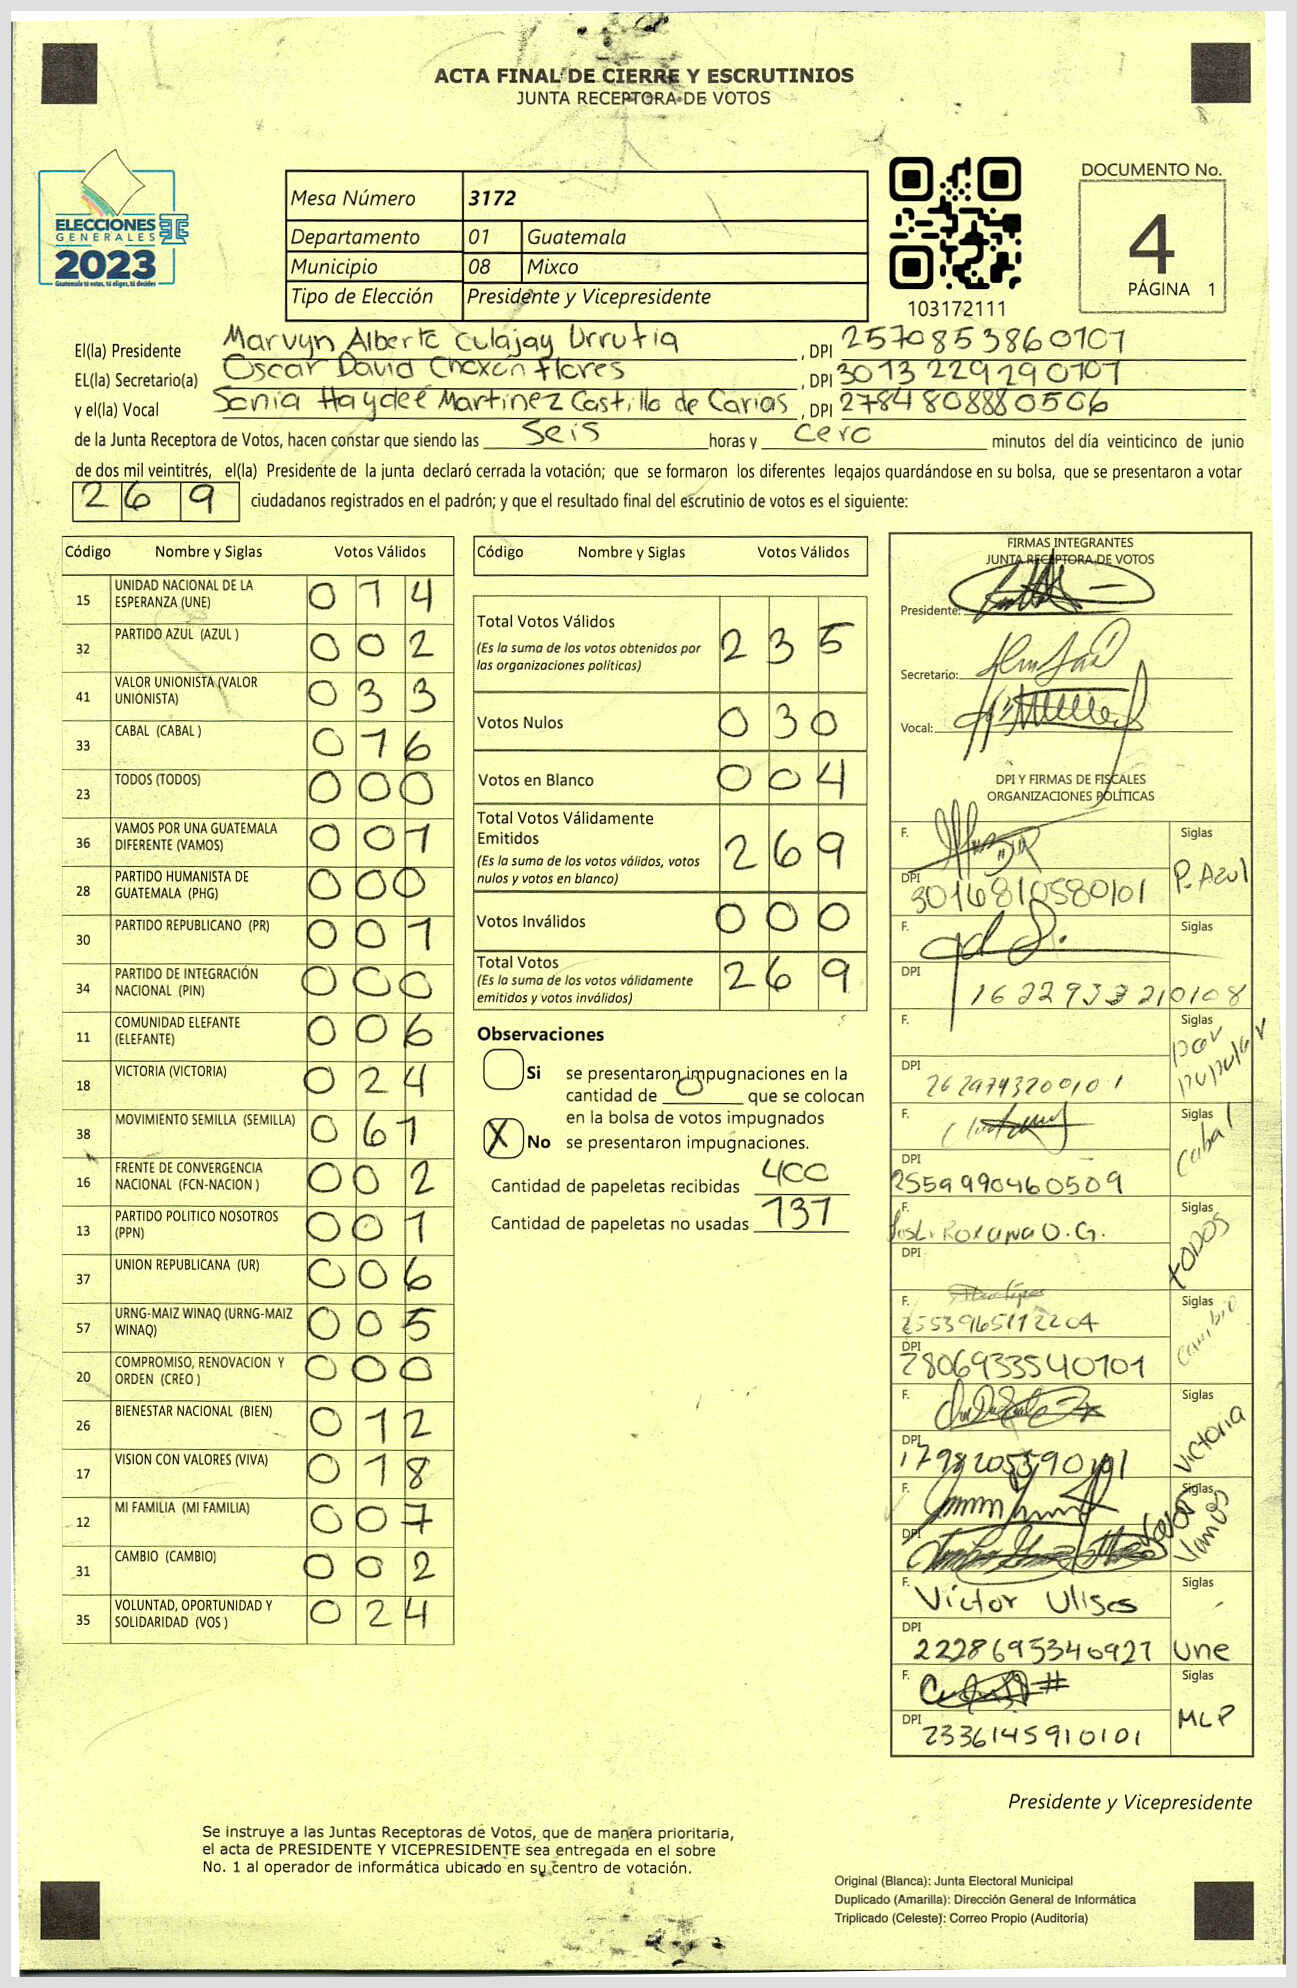 ACTA FINAL DE CIERRE Y ESCRUTINIOS
JUNTA RECEPTORA DE VOTOS
ELECCIONES
GENERALES
2023
Guatemala tú votas, tú eliges, tú decides
Mesa Número 3172
Departamento 01 Guatemala
Municipio 08 Mixco
Tipo de Elección Presidente y Vicepresidente
103172111
DOCUMENTO No.
4
PÁGINA 1
El(la) Presidente Marvyn Alberto Culajay Urrutia, DPI 2570853860101
EL(la) Secretario(a) Oscar David Choxon flores, DPI 3013229290101
y el(la) Vocal Sonia Haydeé Martinez Castillo de Carias, DPI 2784808880506
de la Junta Receptora de Votos, hacen constar que siendo las Seis horas y Cero minutos del día veinticinco de junio
de dos mil veintitrés, el(la) Presidente de la junta declaró cerrada la votación; que se formaron los diferentes legajos quardándose en su bolsa, que se presentaron a votar
269 ciudadanos registrados en el padrón; y que el resultado final del escrutinio de votos es el siguiente:
Código Nombre y Siglas Votos Válidos
15 UNIDAD NACIONAL DE LA ESPERANZA (UNE) 014
32 PARTIDO AZUL (AZUL ) 002
41 VALOR UNIONISTA (VALOR UNIONISTA) 033
33 CABAL (CABAL ) 016
23 TODOS (TODOS) 000
36 VAMOS POR UNA GUATEMALA DIFERENTE (VAMOS) 001
28 PARTIDO HUMANISTA DE GUATEMALA (PHG) 000
30 PARTIDO REPUBLICANO (PR) 001
34 PARTIDO DE INTEGRACIÓN NACIONAL (PIN) 000
11 COMUNIDAD ELEFANTE (ELEFANTE) 006
18 VICTORIA (VICTORIA) 024
38 MOVIMIENTO SEMILLA (SEMILLA) 061
16 FRENTE DE CONVERGENCIA NACIONAL (FCN-NACION ) 002
13 PARTIDO POLITICO NOSOTROS (PPN) 001
37 UNION REPUBLICANA (UR) 006
57 URNG-MAIZ WINAQ (URNG-MAIZ WINAQ) 005
20 COMPROMISO, RENOVACION Y ORDEN (CREO ) 000
26 BIENESTAR NACIONAL (BIEN) 012
17 VISION CON VALORES (VIVA) 018
12 MI FAMILIA (MI FAMILIA) 007
31 CAMBIO (CAMBIO) 002
35 VOLUNTAD, OPORTUNIDAD Y SOLIDARIDAD (VOS ) 024
Código Nombre y Siglas Votos Válidos
Total Votos Válidos 235
(Es la suma de los votos obtenidos por las organizaciones políticas)
Votos Nulos 030
Votos en Blanco 004
Total Votos Válidamente Emitidos 269
(Es la suma de los votos válidos, votos nulos y votos en blanco)
Votos Inválidos 000
Total Votos 269
(Es la suma de los votos válidamente emitidos y votos inválidos)
Observaciones
Si se presentaron impugnaciones en la
cantidad de 0 que se colocan
en la bolsa de votos impugnados
X No se presentaron impugnaciones.
Cantidad de papeletas recibidas 400
Cantidad de papeletas no usadas 131
FIRMAS INTEGRANTES
JUNTA RECEPTORA DE VOTOS
Presidente:
Secretario:
Vocal:
DPI Y FIRMAS DE FISCALES
ORGANIZACIONES POLÍTICAS
F. Siglas P. Azul
DPI 3016810580101
F. Siglas
DPI 1622933210108
F. Siglas
DPI 2629793200101
F. Siglas Cabal
DPI 2559990460509
F. Roxana O. G. Siglas TODOS
DPI
F. Siglas Cambio
2553965112204
DPI 2806933540101
F. Siglas Victoria
DPI 1798205590101
F. Siglas Valor Vamos
DPI
F. Victor Ulises Siglas
DPI 2228695340927 Une
F. Siglas MLP
DPI 2336145910101
Presidente y Vicepresidente
Se instruye a las Juntas Receptoras de Votos, que de manera prioritaria,
el acta de PRESIDENTE Y VICEPRESIDENTE sea entregada en el sobre
No. 1 al operador de informática ubicado en su centro de votación.
Original (Blanca): Junta Electoral Municipal
Duplicado (Amarilla): Dirección General de Informática
Triplicado (Celeste): Correo Propio (Auditoría)